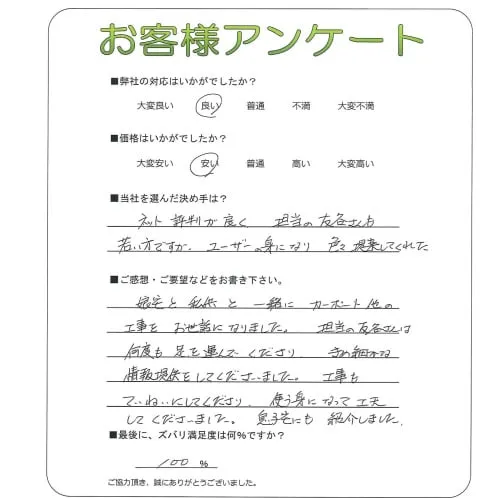 お客様アンケート
■弊社の対応はいかがでしたか?
大変良い 良い 普通 不満 大変不満
■価格はいかがでしたか?
大変安い 安い 普通 高い 大変高い
■当社を選んだ決め手は?
ネット評判が良く、担当の友谷さんも
若い方ですが、ユーザーの身になり 色々提案してくれた
■ご感想・ご要望などをお書き下さい。
娘宅と私供と一緒に カーポート他の
工事を お世話になりました。 担当の友谷さんは
何度も 足を運んで くださり、 きめ細かな
情報提供をしてくださいました。 工事も
ていねいにしてくださり、 使う身になって工夫
してくださいました。 息子宅にも 紹介しました。
■最後に、ズバリ満足度は何%ですか?
100 %
ご協力頂き、誠にありがとうございました。